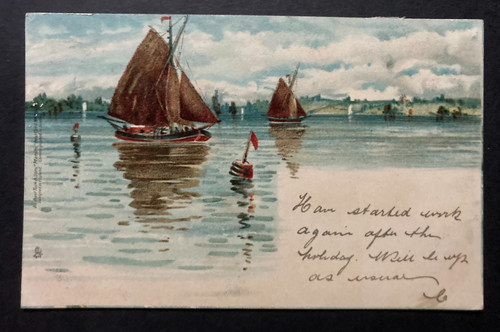 Have started work
again after the
holiday. Will be up
as usual